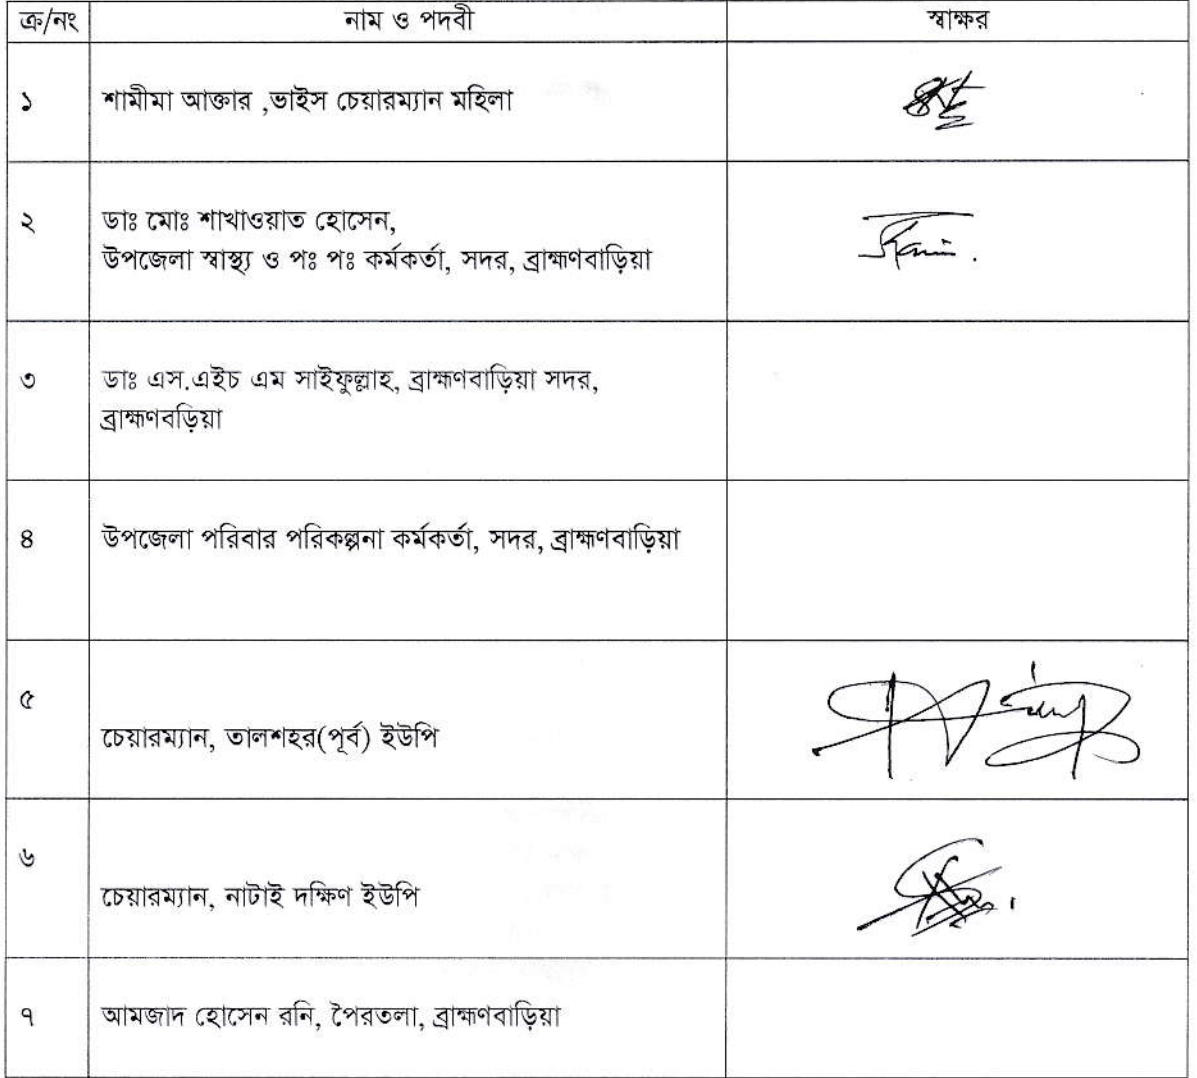 ক্র/নং নাম ও পদবী স্বাক্ষর
১ শামীমা আক্তার ,ভাইস চেয়ারম্যান মহিলা
২ ডাঃ মোঃ শাখাওয়াত হোসেন,
উপজেলা স্বাস্থ্য ও পঃ পঃ কর্মকর্তা, সদর, ব্রাহ্মণবাড়িয়া
৩ ডাঃ এস.এইচ এম সাইফুল্লাহ, ব্রাহ্মণবাড়িয়া সদর,
ব্রাহ্মণবড়িয়া
৪ উপজেলা পরিবার পরিকল্পনা কর্মকর্তা, সদর, ব্রাহ্মণবাড়িয়া
৫
চেয়ারম্যান, তালশহর(পূর্ব) ইউপি
৬
চেয়ারম্যান, নাটাই দক্ষিণ ইউপি
৭ আমজাদ হোসেন রনি, পৈরতলা, ব্রাহ্মণবাড়িয়া